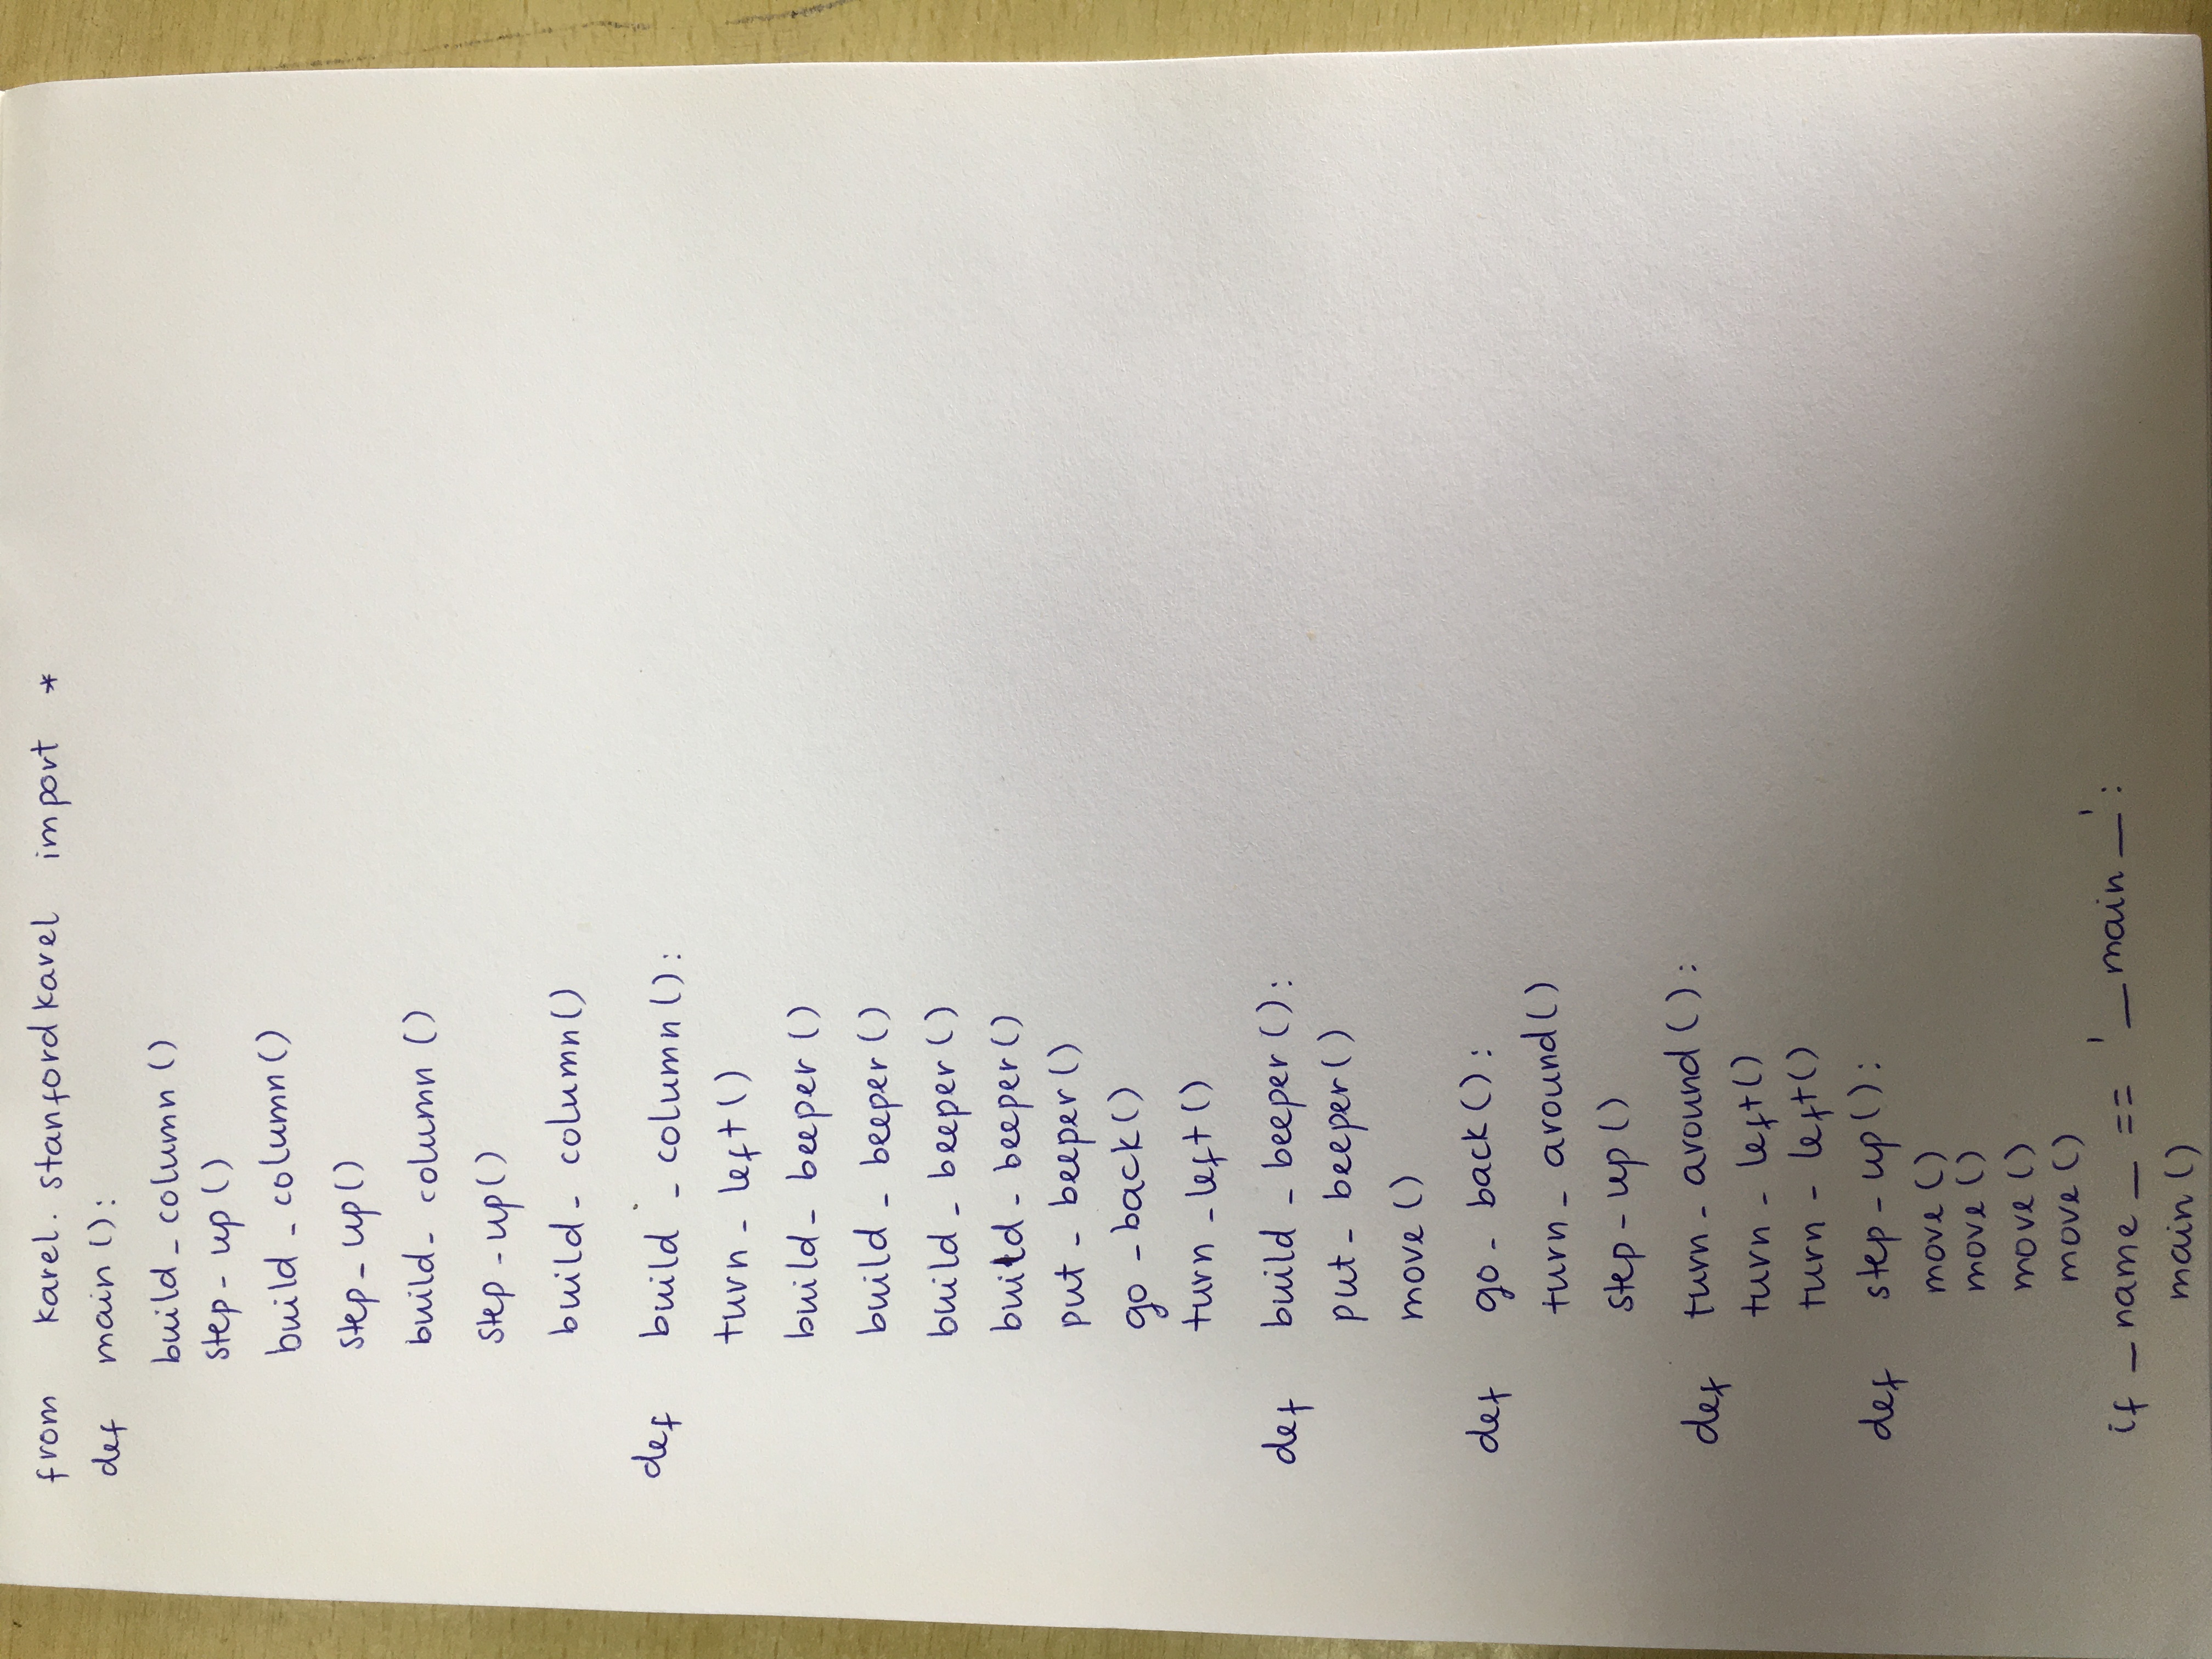 from karel.stanfordkarel import *
def main():
build_column()
step_up()
build_column()
step_up()
build_column()
step_up()
build_column()
def build_column():
turn_left()
build_beeper()
build_beeper()
build_beeper()
build_beeper()
put_beeper()
go_back()
turn_left()
def build_beeper():
put_beeper()
move()
def go_back():
turn_around()
step_up()
def turn_around():
turn_left()
turn_left()
def step_up():
move()
move()
move()
move()
if _name_ == '_main_':
main()